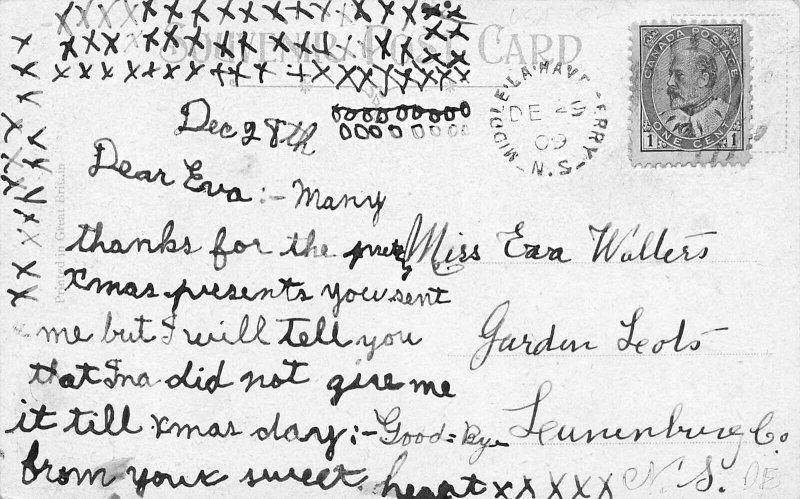 X X X X X X X X X X X X X X X X X X
X X X X X X X X X X X X X X X X X
X X X X X X X X X X X X X X X X X X X X
SOUVENIR POST CARD
CANADA POSTAGE
1 ONE CENT 1
MIDDLE LA HAVE FERRY - N.S.
DE 29
09
Printed in Great Britain
Dec 28th
OOOOOOOOO
OOOOOOOO
Dear Eva:- Many
thanks for the
Xmas presents you sent
me but I will tell you
that Ina did not give me
it till xmas day;- Good=Bye
from your sweet heart x x x x x
Miss Eva Wolters
Garden Lots
Lunenburg Co.
N. S.